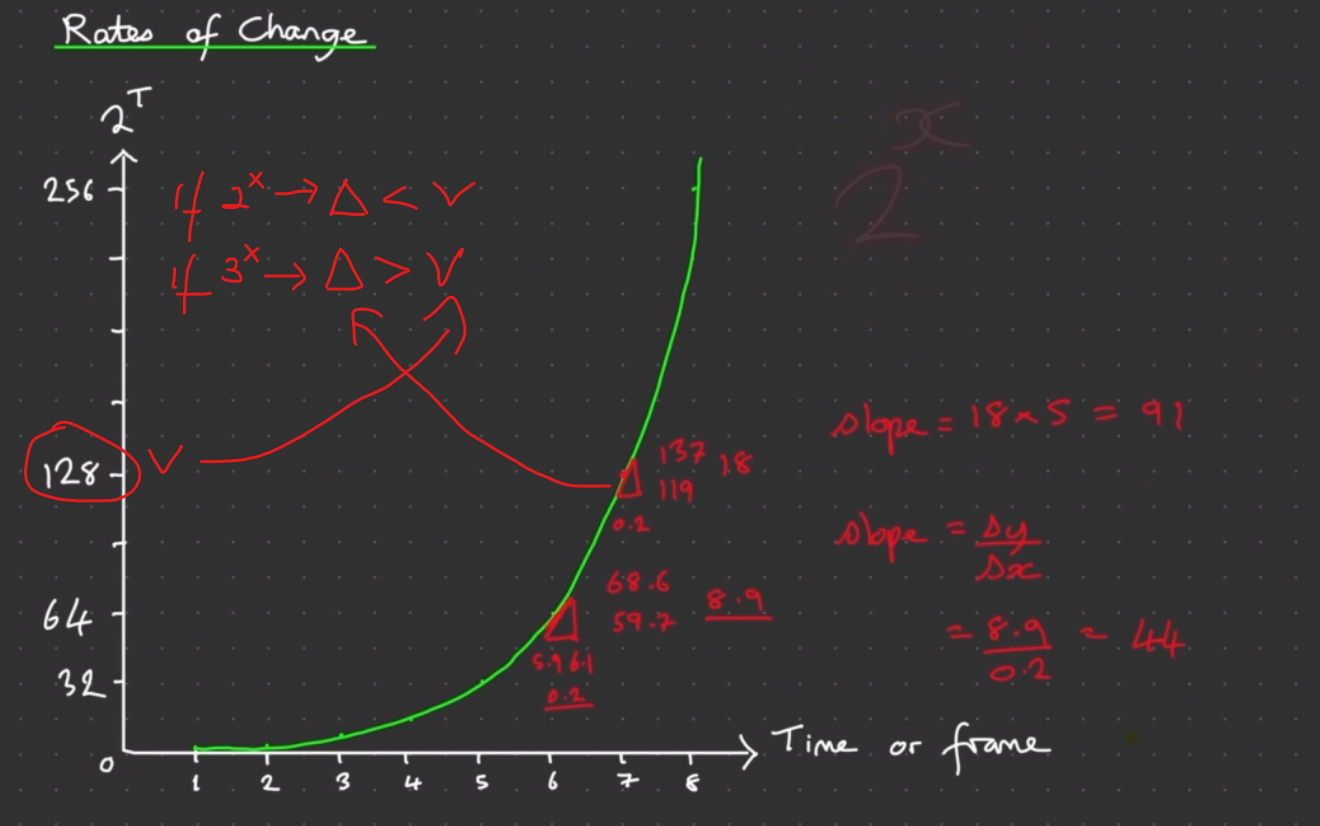 Rates of Change
2^T
256
128
64
32
0
1 2 3 4 5 6 7 8
Time or frame
If 2^x → Δ < V
If 3^x → Δ > V
V
2^x
137
119
18
0.2
68.6
59.7
8.9
5.9 6.1
0.2
slope = 18 × 5 = 91
slope = Δy/Δx
= 8.9/0.2 = 44